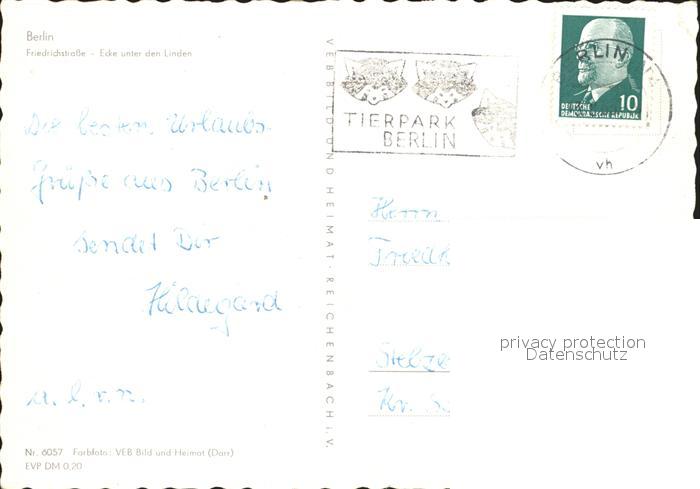 Berlin
Friedrichstraße - Ecke unter den Linden
Die besten Urlaubs-
grüße aus Berlin
sendet Dir
Hildegard
Nr. 6057 Farbfoto: VEB Bild und Heimat (Darr)
EVP DM 0,20
VEB BILD UND HEIMAT · REICHENBACH i. V.
TIERPARK
BERLIN
BERLIN
vh
10
DEUTSCHE
DEMOKRATISCHE REPUBLIK
Herrn
Kr.
privacy protection
Datenschutz